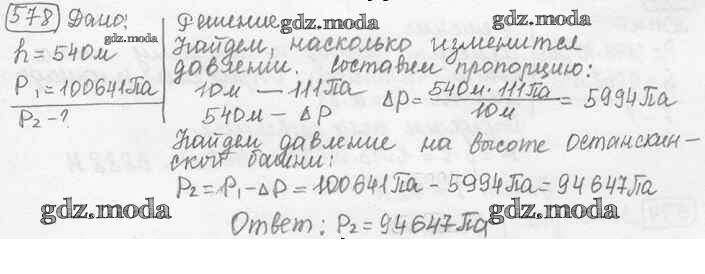 578 Дано:
h = 540м
P₁ = 100641Па
P₂ - ?
Решение
gdz.moda
gdz.moda
gdz.moda
Найдем, насколько изменится
давлении. Составим пропорцию:
10м — 111Па
540м — ΔP
ΔP = 540м · 111Па / 10м = 5994Па
Найдем давление на высоте Останскин-
ской башни:
P₂ = P₁ - ΔP = 100641Па - 5994Па = 94647Па
gdz.moda
gdz.moda
gdz.moda
Ответ: P₂ = 94647Па